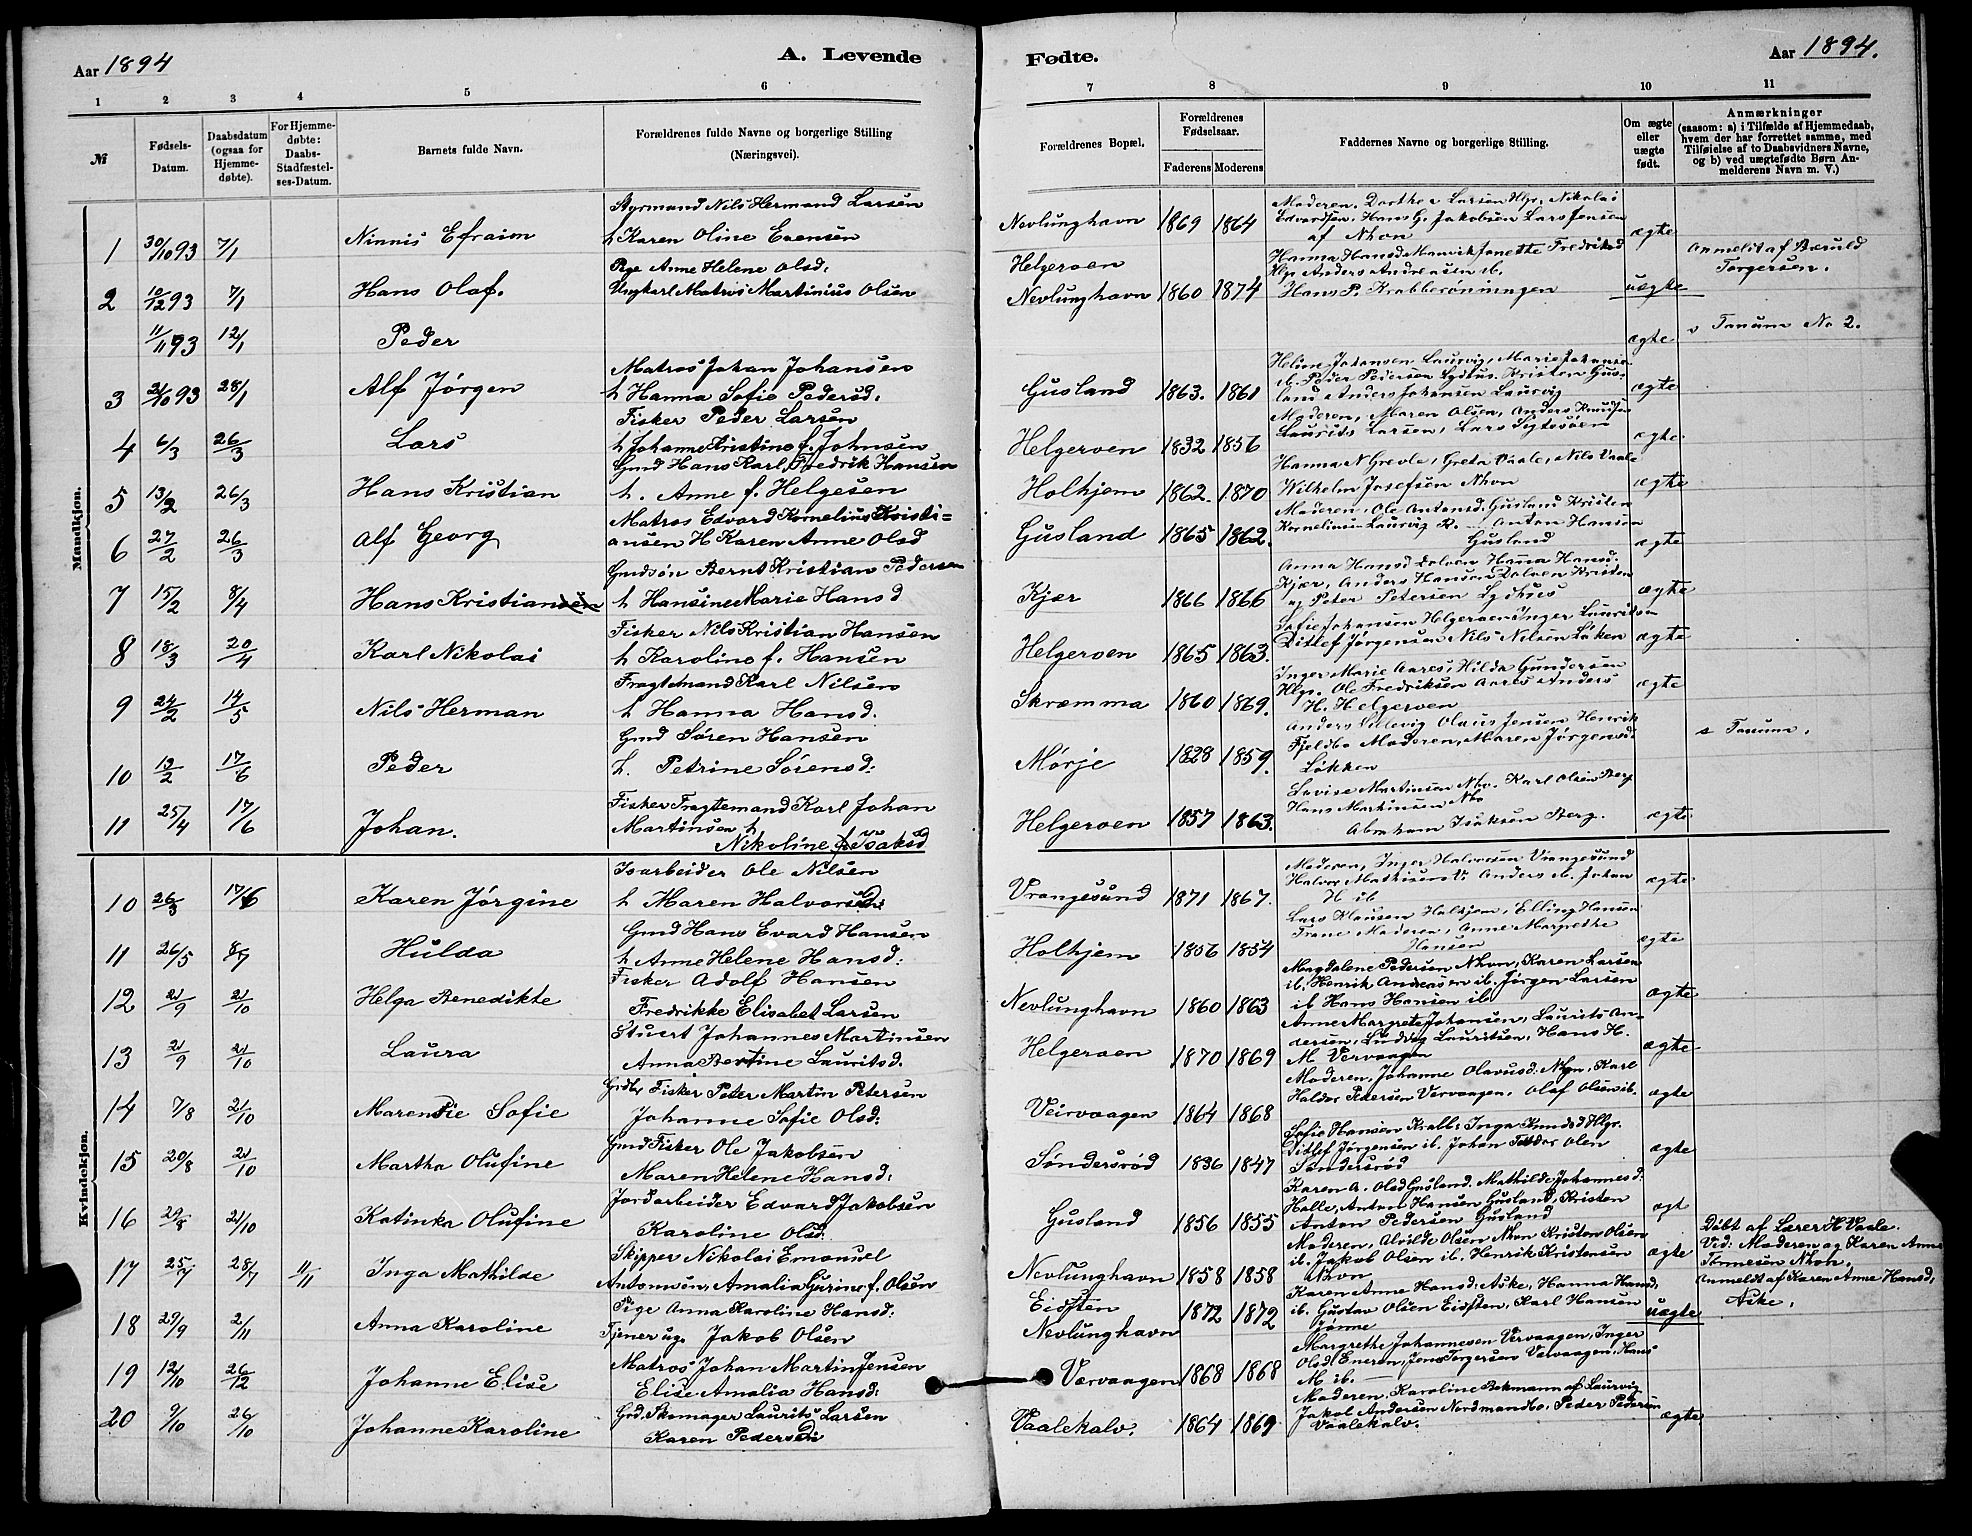 Aar 1894
A. Levende
Fødte.
Aar 1894.
1 2 3 4 5 6
7 8 9 10 11
№
Fødsels-Datum.
Daabsdatum (ogsaa for Hjemme-døbte).
For Hjemme-døbte: Daabs-Stadfæstel-ses-Datum.
Barnets fulde Navn.
Forældrenes fulde Navne og borgerlige Stilling (Næringsvei).
Forældrenes Bopæl.
Forældrenes Fødselsaar.
Faderens Moderens
Faddernes Navne og borgerlige Stilling.
Om ægte eller uægte født.
Anmærkninger
(saasom: a) i Tilfælde af Hjemmedaab, hvem der har forrettet samme, med Tilføielse af to Daabsvidners Navne, og b) ved uægtefødte Børn Anmelderens Navn m. V.)
Mandkjøn.
1 30/10 93 7/1 Ninnis Efraim
Styrmand Nils Hermand Larsen
h Karen Oline Evensen
Nevlunghavn 1869 1864
Moderen, Dorthea Larsen Hlgr, Nikolai
Edvardsen, Hans G. Jakobsen Lars Jensen
af Nhvn
ægte
2 10/12 93 7/1 Hans Olaf.
Pige Anne Helene Olsd.
Ungkarl Matros Martinius Olsen
Helgeroen
Nevlunghavn 1860 1874
Hanna Hansd Manvik Janette Fredriksd
Hlgr Anders Andreasen ib.
Hans P. Krabberöningen
uægte
Anmeldt af
Torgersen.
11/11 93 12/1 Peder
ægte
s Tanum No 2.
3 21/10 93 28/1 Alf Jørgen
Matros Johan Johansen
h Hanna Sofie Pedersd.
Gusland 1863. 1861
Heline Johansen Laurvig, Marie Johanse
ib. Peder Pedersen Lydhus. Kristen Gus-
land Anders Johansen Laurvig
ægte
4 6/3 26/3 Lars
Fisker Peder Larsen
h Johanne Kristine f. Johnsen
Helgeroen 1832 1856
Moderen, Maren Olsen, Anders Knudsen
Laurits Larsen, Lars
ægte
5 13/2 26/3 Hans Kristian
Gmd Hans Karl Fredrik Hansen
h. Anne f. Helgesen
Holhjem 1862. 1870
Hanna N Grevle, Greta Vaale, Nils Vaale
Wilhelm Josefsen Nhvn
ægte
6 27/2 26/3 Alf Georg
Matros Edvard Kornelius Kristi=
ansen H Karen Anne Olsd
Gusland 1865 1862.
Moderen, Ole Antonsd. Gusland Kristen
Kornelinsen Laurvig K. Anton Hansen
Gusland
ægte
7 15/2 8/4 Hans Kristiansen
Gmdsön Bernt Kristian Pedersen
h Hansine Marie Hansd
Kjær 1866 1866
Anna Hansd Dolven Hanna Hansd.
Kjær, Anders Hansen Dolven Kristen
og Peter Petersen Lydhus
ægte
8 18/3 20/4 Karl Nikolai
Fisker Nils Kristian Hansen
h Karoline f. Hansen
Helgeroen 1865 1863.
Sofie Johansen Helgeroen Inger Lauritsen
Ditlef Jørgensen Nils Nilsen Løken
ægte
9 24/2 14/5 Nils Herman
Fragtemand Karl Nilsen
h Hanna Hansd.
Skræmma 1860 1869.
Inger Marie Aares, Hilda Gundersen
Hlgr. Ole Fredriksen Aares Anders
H. Helgeroen
ægte
10 13/2 17/6 Peder
Gmd Søren Hansen
h. Petrine Sørensd.
Mørje 1828 1859.
Anders Sillevig Olaus Jensen Henrik
Fjeldbo Moderen, Maren Jørgensd.
Løkken
s Tanum.
11 25/4 17/6 Johan.
Fisker Fragtemand Karl Johan
Martinsen h
Nikoline f. Isaksd
Helgeroen 1857 1863.
Lovise Martinsen Nhv. Karl Olsen Berg
Hans Martinsen Nhv
Abraham Isaksen Berg.
ægte
Kvindekjøn.
10 26/3 17/6 Karen Jørgine
Isarbeider Ole Nilsen
h Maren Halvorsd.
Vrangesund 1871 1867.
Moderen, Inger Halvorsen Vrangesund
Halvor Mathisen V. Anders ib. Johan
H ib
ægte
11 26/5 8/7 Hulda
Gmd Hans Evard Hansen
h Anne Helene Hansd.
Holhjem 1856 1854
Lars Klausen Holhjem, Elling Hansen
Trane Moderen, Anne Margrethe
Hansen
ægte
12 2/9 21/10 Helga Benedikte
Fisker Adolf Hansen
Fredrikke Elisabet Larsen
Nevlunghavn 1860 1863
Magdalene Pedersen Nhvn, Karen Larsen
ib. Henrik Andreasen ib. Jörgen Larsen
ib Hans Hansen ib
ægte
13 2/9 21/10 Laura
Stuert Johannes Martinsen
Anna Bertine Lauritsd.
Helgeroen 1870 1869
Anne Margrete Johansen, Laurits An-
dersen, Ludvig Lauritsen, Hans H.
M Vervaagen
ægte
14 7/8 21/10 Maren Sofie
Grdbr Fisker Peter Martin Petersen
Johanne Sofie Olsd.
Veirvaagen 1864 1868
Moderen, Johanne Olavusd. Nhvn, Karl
Haldor Pedersen Vervaagen. Olaf Olsen ib.
ægte
15 20/8 21/10 Martha Olufine
Gmd Fisker Ole Jakobsen
Maren Helene Hansd.
Søndersrød 1836 1847
Sofie Hansen Krabb. Inga Knudsd Hlgr.
Ditlef Jørgensen ib. Johan Teodor Olen
Søndersrød
ægte
16 29/8 21/10 Katinka Olufine
Jordarbeider Edvard Jakobsen
Karoline Olsd.
Gusland 1856 1855
Karen A. Olsd Gusland. Mathilde Johannesd.
Holle, Anton Hansen Gusland, Kristen
Anton Pedersen Gusland
ægt
17 25/7 28/7 11/11 Inga Mathilde
Skipper Nikolai Emanuel
Antonsen, Amalia Gurine f. Olsen
Nevlunghavn 1858 1858
Moderen, Alvilde Olsen Nhvn Kristen Olsen
ib. Jakob Olsen ib. Henrik Kristensen
Nhvn
ægte
Døbt af Lærer H Vaale.
Ved: Moderen og Karen Anne
Tønnesen Nhvn.
18 29/9 2/11 Anna Karoline
Pige Anna Karoline Hansd.
Tjener ug. Jakob Olsen
Eidsten 1872 1872
Nevlunghavn
Karen Anne Hansd. Aske, Hanna Hansd,
ib. Gustav Olsen Eidsten, Karl Hansen
Tjønne
uægte
Anmeldt af Karen Anne Hansd,
Aske.
19 12/10 26/12 Johanne Elise
Matros Johan Martin Jensen
Elise Amalia Hansd.
Værvaagen 1868 1868
Margrethe Johannesen Vervaagen, Inger
Olsd Eneren, Jens Torgersen Vervaagen, Hans
M ib.
20 9/10 26/10 Johanne Karoline
Grd. Skomager Laurits Larsen
Karen Pedersen
Vaalekalv. 1864 1869
Moderen, Karoline Bekmann af Laurvig
Jakob Andersen Nordmandbo, Peder Pedersen
Vaalekalv.
ægte